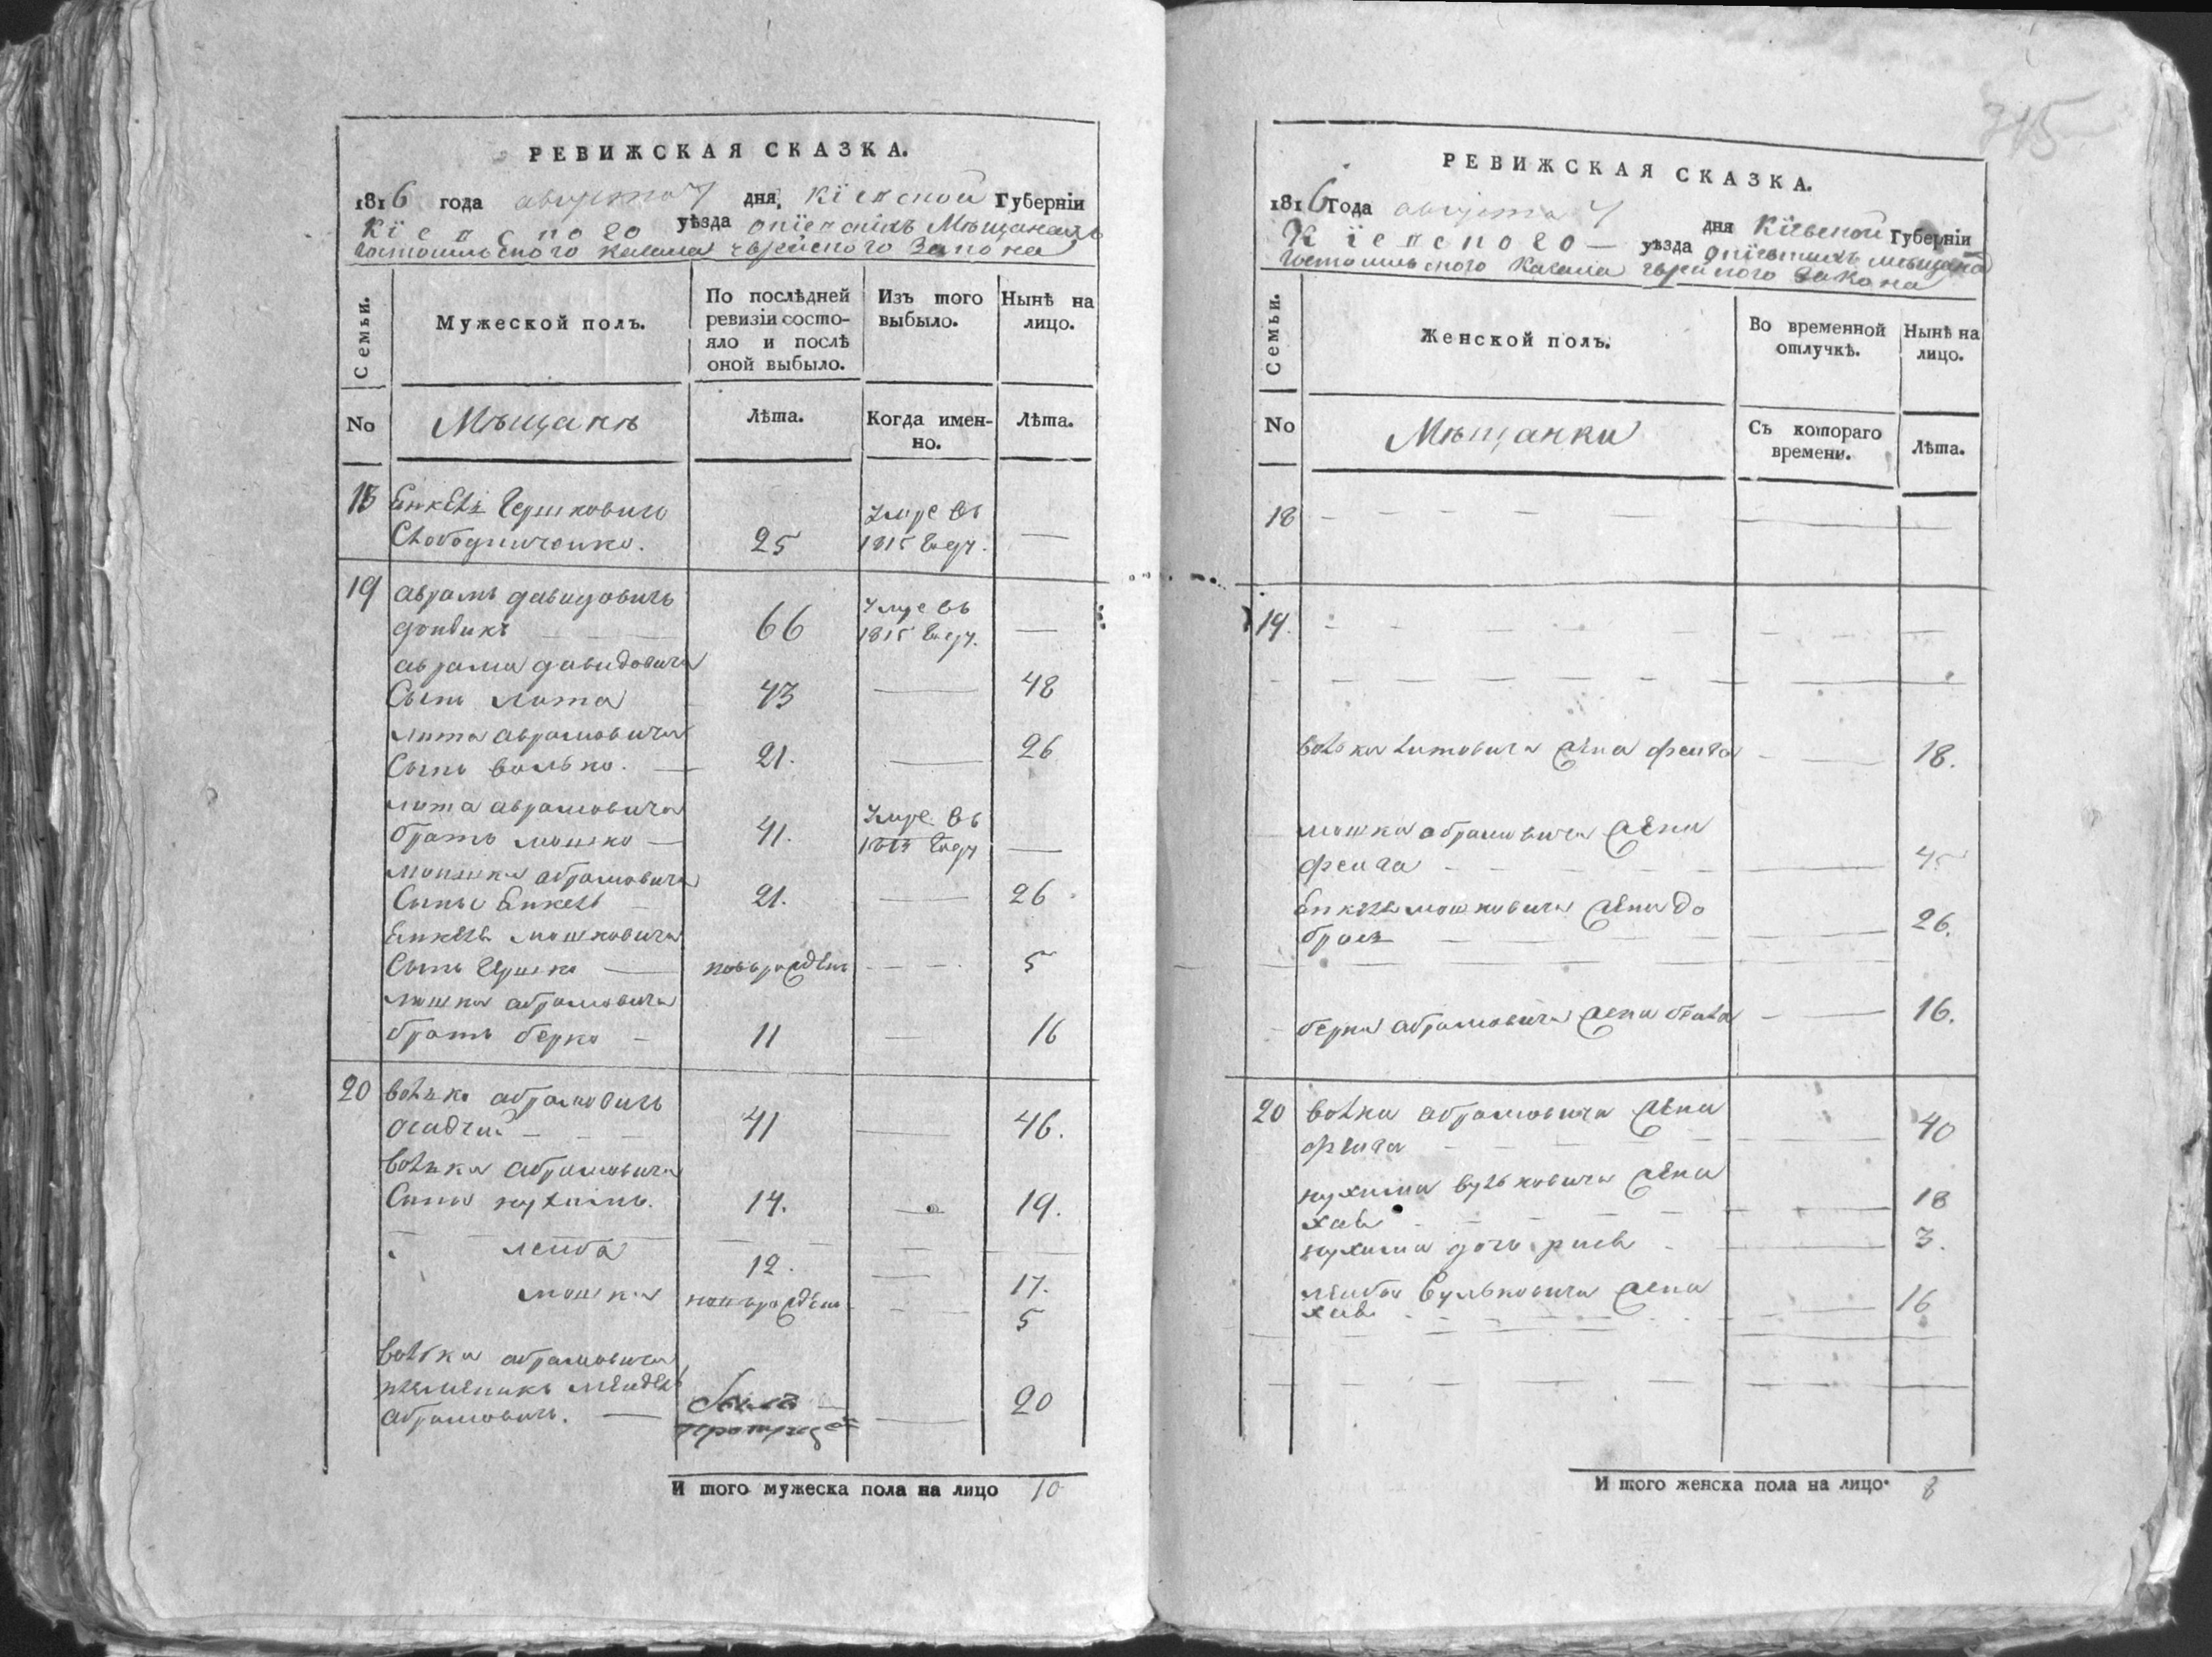 РЕВИЖСКАЯ СКАЗКА.
1816 года августа 7 дня, Кіевской Губерніи
Кіевского уѣзда о Мѣщанахъ
кагала еврейского Закона
Семьи.
Мужеской полъ.
По послѣдней ревизіи состо-
яло и послѣ оной выбыло.
Изъ того выбыло.
Нынѣ на лицо.
No
Мѣщанѣ
Лѣта.
Когда имен-
но.
Лѣта.
18 Янкель Гершковичъ Умре въ
25 1815 Году. —
19 аврамъ давидовичъ Умре въ
66 1815 Году. —
аврама давидовича
Сынъ лита 43 — 48
лита аврамовича
Сынъ волько. — 21. — 26
лита аврамовича Умре въ
братъ мошко — 41. 1813 Году —
мошка абрамовича
Сынъ Янкель 21. — 26
Янкеля мошковича
Сынъ Гершко — новорожденъ - - - 5
мошка абрамовича
братъ берко - 11 — 16
20 волько абрамовичъ
осадчий - - - 41 — 46.
волька абрамовича
Сынъ нухимъ. 14. — 19.
лейба 12. — 17.
мошко новорожденъ - - 5
волька абрамовича
племеникъ мендель
абрамовичъ. — — 20
И того мужеска пола на лицо 10
345
РЕВИЖСКАЯ СКАЗКА.
1816 Года августа 7 дня Кіевской Губерніи
Кіевского — уѣзда о мещана
кагала закона
Семьи.
Женской полъ.
Во временной
отлучкѣ.
Нынѣ на
лицо.
No
Мѣщанки
Съ котораго
времени.
Лѣта.
18 - - - - - —
19. - - - - - - - —
волька литовича жена фейга - — 18.
мошка абрамовича жена
фейга - - - - - — 45
Янкеля мошковича жена до
броя — — — 26.
берка абрамовича жена бейла - — 16.
20 волка абрамовича жена
фейга - - - — 40
нухима вульковича жена
хая - - - - — 18
нухима дочь рися - — 3.
лейбы вульковича жена
хая - - - — 16
И того женска пола на лицо. 8